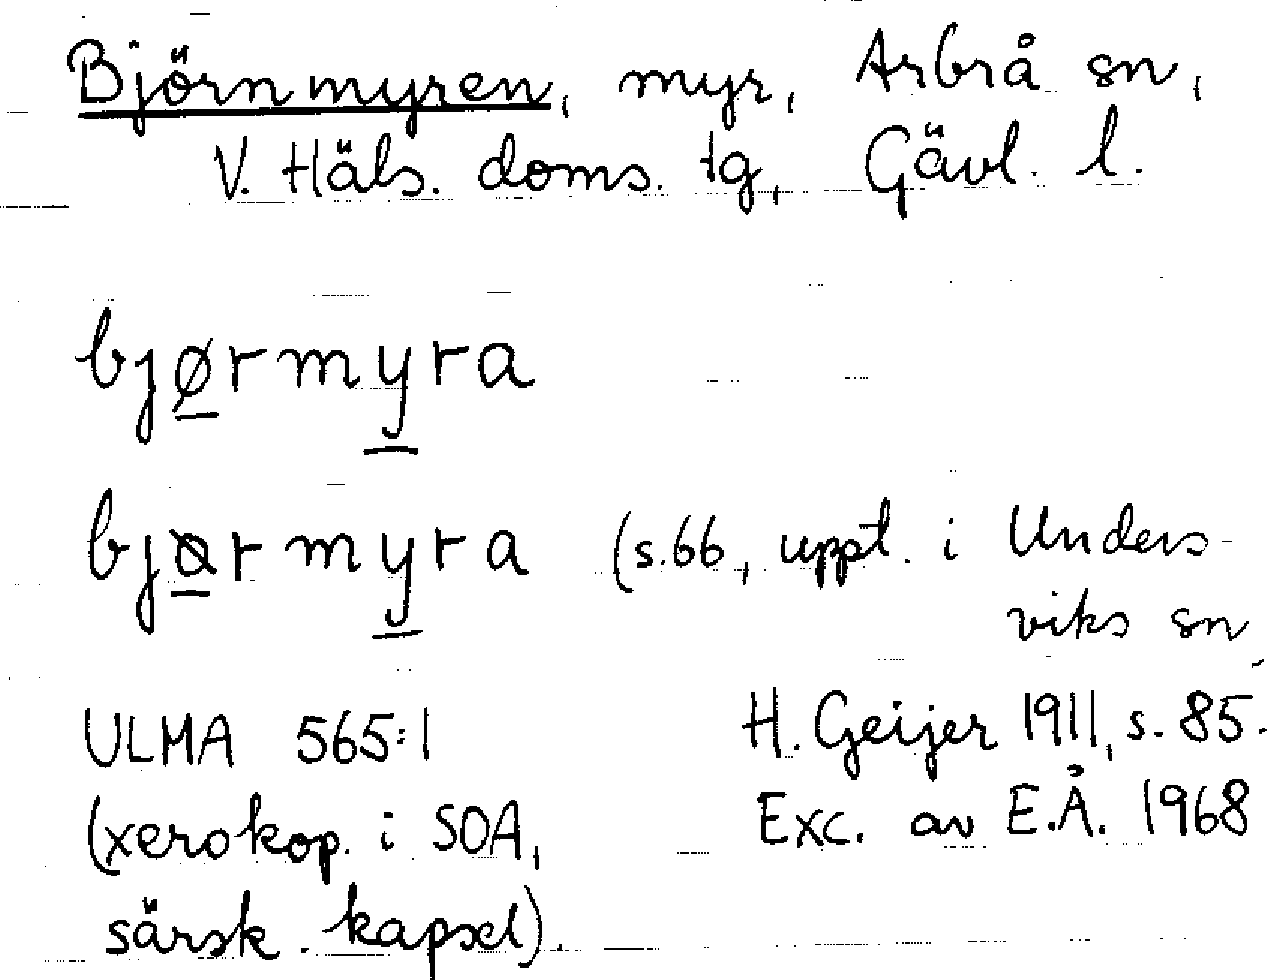 Björnmyren, myr, Arbrå sn,
V. Häls. doms. tg, Gävl. l.
bjørmyra
bjørmyra (s.66, uppt. i Unders-
viks sn
ULMA 565:1 H. Geijer 1911, s. 85.
(xerokop. i SOA, Exc. av E.Å. 1968
särsk. kapsel).